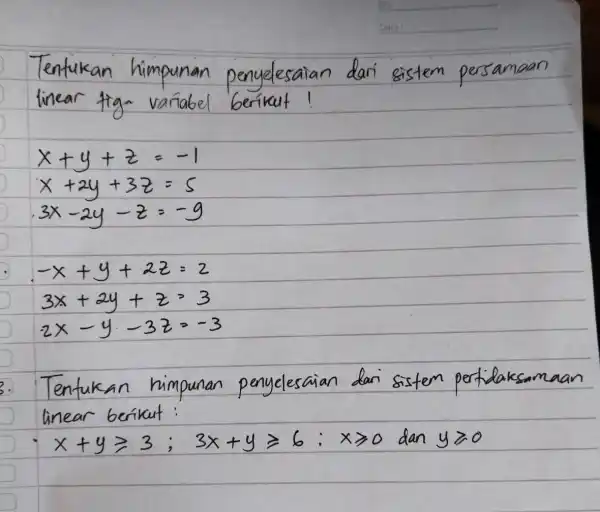 Tentukan himpunan penyelesaian dari sistem persamaan
linear tiga variabel berikut !
x + y + z = -1
x + 2y + 3z = 5
3x - 2y - z = -9
-x + y + 2z = 2
3x + 2y + z = 3
2x - y - 3z = -3
3. Tentukan himpunan penyelesaian dari sistem pertidaksamaan
linear berikut :
x + y ≥ 3 ; 3x + y ≥ 6 ; x ≥ 0 dan y ≥ 0